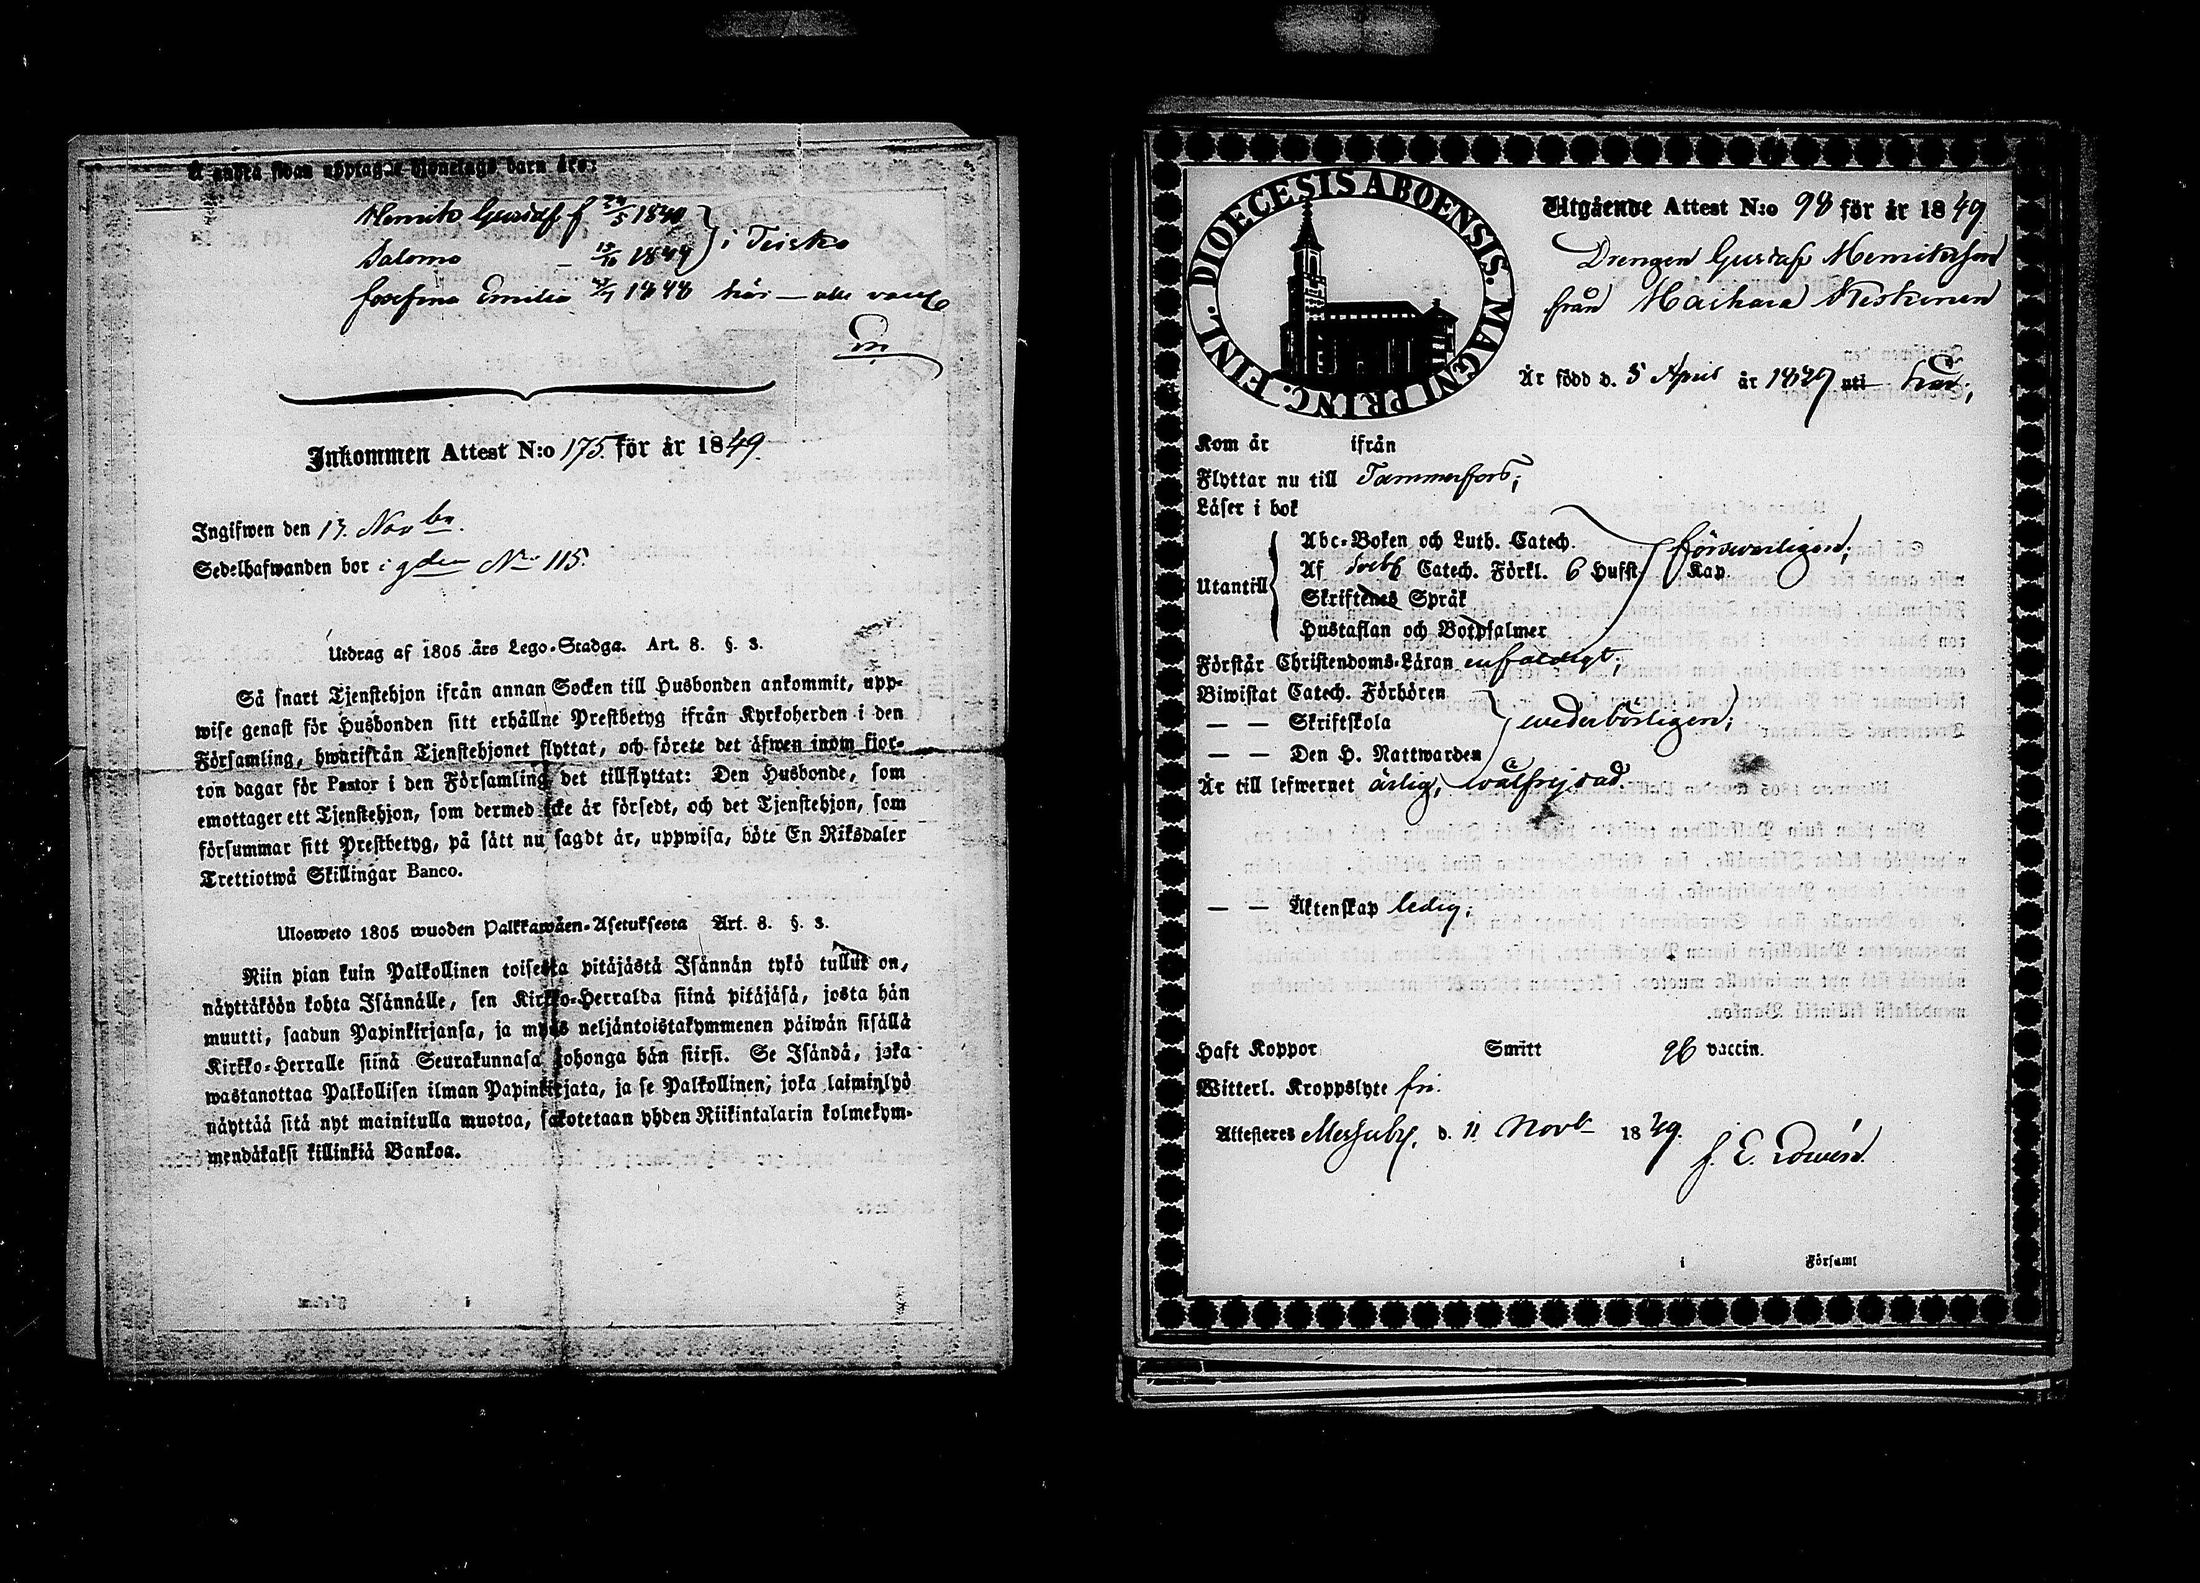 Å andra sidan upptagne Hionelags barn äro:
Henrik Gustaf f 24/5 1840
Salomo — 13/10 1844 } i Teisko
Josefina Emilia 4/7 1848 här — alla vacc.
Inkommen Attest N:o 175. för år 1849.
Ingifwen den 13. Novbr.
Sedelhafwanden bor i gden No 115.
Utdrag af 1805 års Lego-Stadga. Art. 8. §. 3.
Så snart Tjenstehjon ifrån annan Socken till Husbonden ankommit, upp-
wise genast för Husbonden sitt erhållne Prestbetyg ifrån Kyrkoherden i den
Församling, hwarifrån Tjenstehjonet flyttat, och förete det äfwen inom fjor-
ton dagar för Pastor i den Församling det tillflyttat: Den Husbonde, som
emottager ett Tjenstehjon, som dermed icke är försedt, och det Tjenstehjon, som
försummar sitt Prestbetyg, på sätt nu sagdt är, uppwisa, böte En Riksdaler
Trettiotwå Skillingar Banco.
Ulosweto 1805 wuoden Palkkawäen-Asetuksesta Art. 8. §. 3.
Niin pian kuin Palkollinen toisesta pitäjästä Isännän tykö tullut on,
näyttäköön kohta Isännälle, sen Kirkko-Herralda siinä pitäjäsä, josta hän
muutti, saadun Papinkirjansa, ja myös neljäntoistakymmenen päiwän sisällä
Kirkko-Herralle siinä Seurakunnasa johonga hän siirsi. Se Isändä, joka
wastanottaa Palkollisen ilman Papinkirjata, ja se Palkollinen, joka laiminlyö
näyttää sitä nyt mainitulla muotoa, sakotetaan yhden Riikintalarin kolmekym-
mendäkaksi killinkiä Bankoa.
DIOECESIS ABOENSIS. MAGNI PRINC. FINL.
Utgående Attest N:o 98 för år 1849
Drengen Gustaf Henriksson
från Haihara Keskinen
Är född d. 5 April år 1827 uti här;
Kom år ifrån
Flyttar nu till Tammerfors;
Läser i bok
Abc-Boken och Luth. Catech. försvarligen;
Utantill Af Catech. Förkl. 6 Hufst. Kap
Skriftenes Språk
Hustaflan och Botpsalmer
Förstår Christendoms-Läran enfaldigt;
Biwistat Catech. Förhören
— — Skriftskola wederbörligen;
— — Den H. Nattwarden
Är till lefwernet ärlig, wälfrejdad.
— — Äktenskap ledig;
Haft Koppor Smitt vaccin.
Witterl. Kroppslyte fri.
Attesteres Messuby, d. 11 Novb. 1849.
i Församl